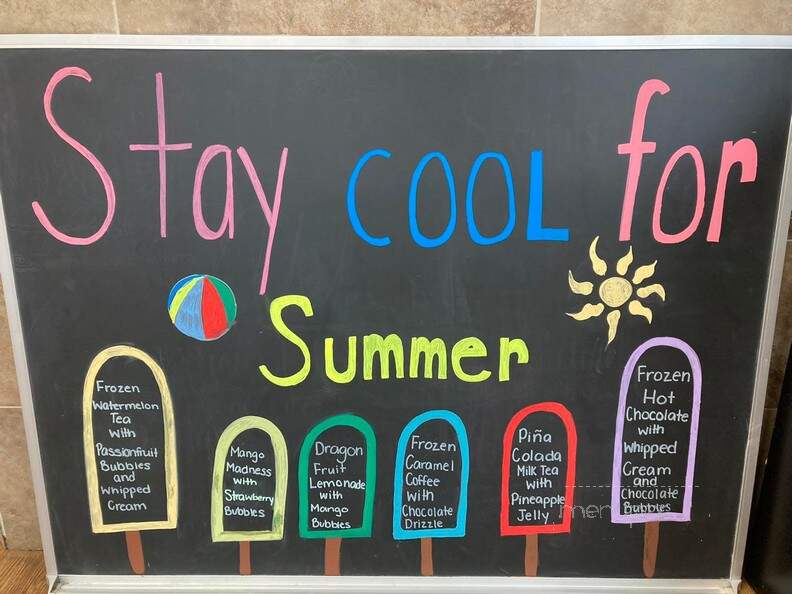 Stay COOL for
Summer
Frozen
Watermelon
Tea
with
Passionfruit
Bubbles
and
Whipped
Cream
Mango
Madness
with
Strawberry
Bubbles
Dragon
Fruit
Lemonade
with
Mango
Bubbles
Frozen
Caramel
Coffee
with
Chocolate
Drizzle
Piña
Colada
Milk Tea
with
Pineapple
Jelly
Frozen
Hot
Chocolate
with
Whipped
Cream
and
Chocolate
Bubbles